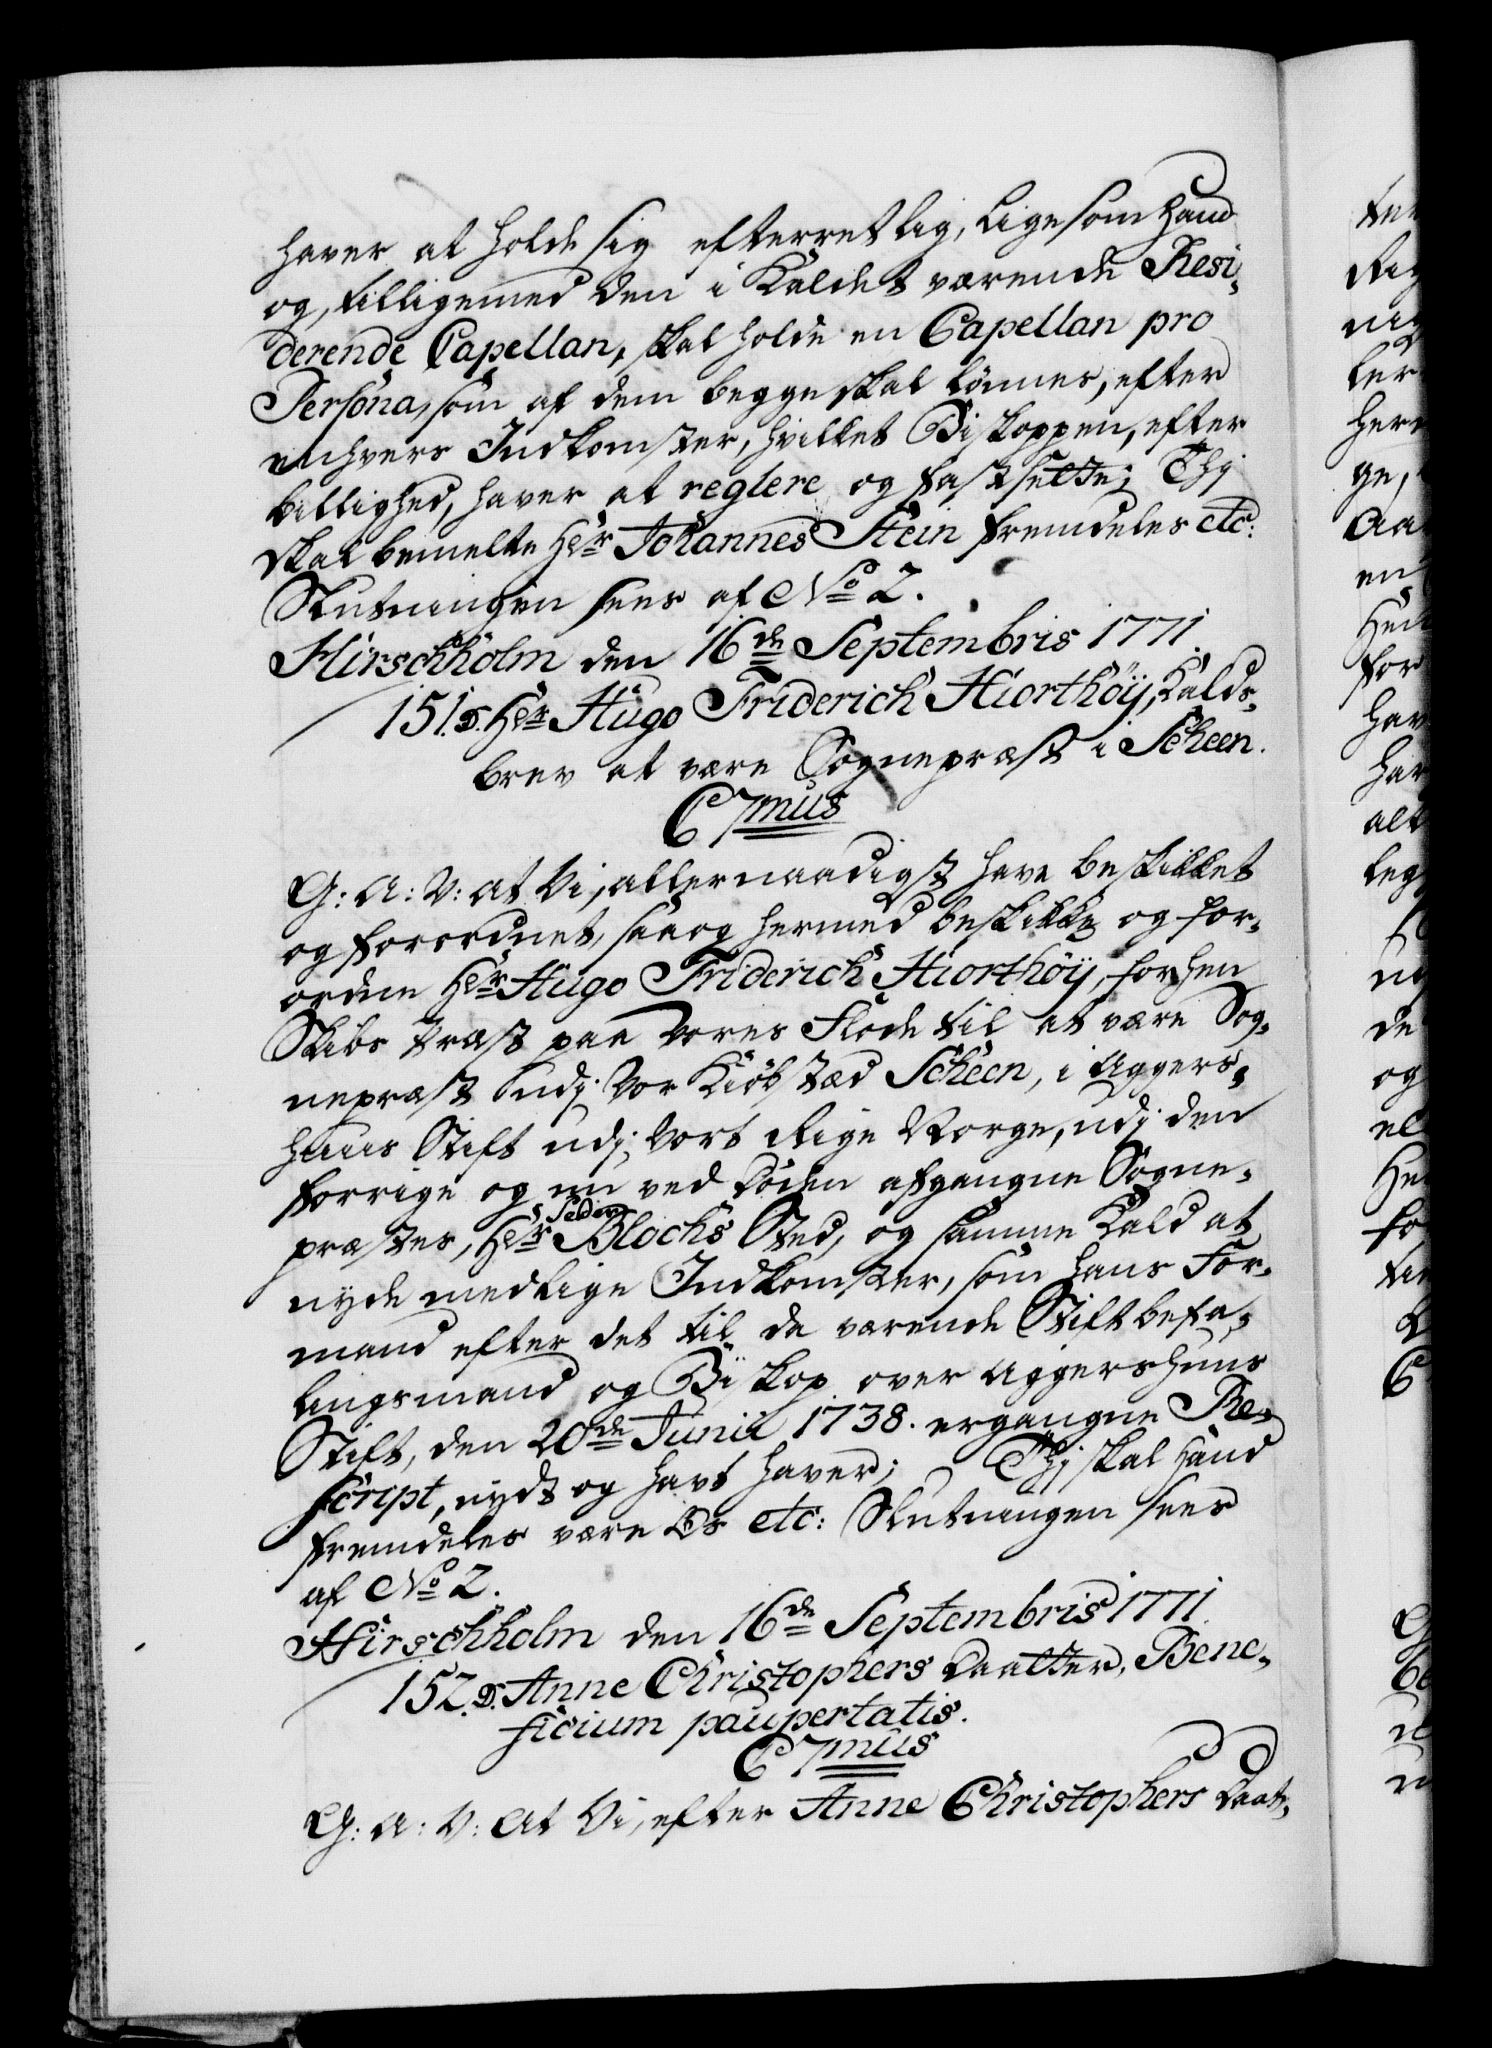 haver at holde sig efterrettlig, Ligesom Hand
og, tilligemed den i Kaldet værende Resi-
derende Capellan, skal holde en Capellan pro
Persona, som af dem begge skal lönnes, efter
enhvers Indkomster, hvilket Biskoppen, efter
billighed, haver at reglere og fastsette; Thi
skal bemelte Hr Johannes Stein fremdeles etc:
Slutningen sees af No 2.
Hirschholm den 16de Septembris 1771.
151. D. Hr Hugo Friderich Hiorthöÿ, Kalds-
brev at være Sognepræst i Scheen.
C 7mus
G: A: V: At Vi, allernaadigst have beskikket
og forordnet, saa og hermed beskikke og for-
ordne Hr Hugo Friderich Hiorthöÿ, forhen
Skibs Præst paa Vores Flode til at være Sog-
nepræst udj Vor Kiöbstæd Scheen, i Aggers-
huus Stift udj Vort Rige Norge, udj den
forrige og nu ved Döden afgangne Sogne-
præstes, Hr Peder Blochs Sted, og samme Kald at
nyde med lige Indkomster, som hans For-
mand efter det til da værende Stiftbefa-
lingsmand og Biskop over Aggershuus
Stift, den 20de Junii 1738. ergangne Re-
script, nydt og havt haver; Thj skal Hand
fremdeles være Os etc: Slutningen sees
af No 2.
Hirschholm den 16de Septembris 1771.
152. D. Anne Christophers Daatter, Bene-
ficium paupertatis.
C 7mus
G: A: V: At Vi, efter Anne Christophers Daat-